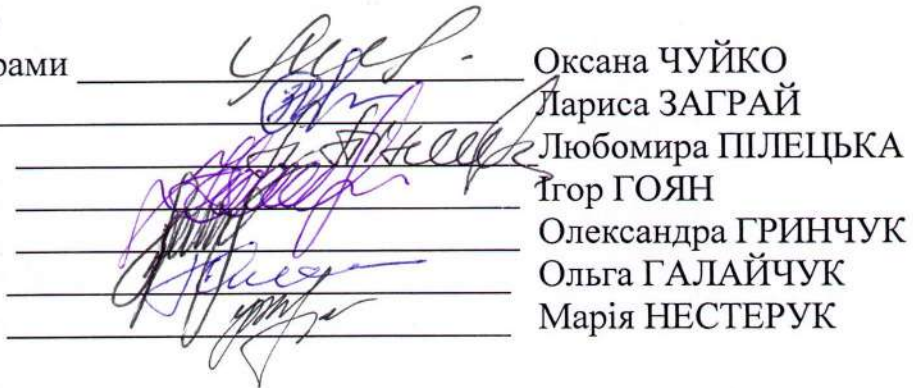 рами Оксана ЧУЙКО
Лариса ЗАГРАЙ
Любомира ПІЛЕЦЬКА
Ігор ГОЯН
Олександра ГРИНЧУК
Ольга ГАЛАЙЧУК
Марія НЕСТЕРУК